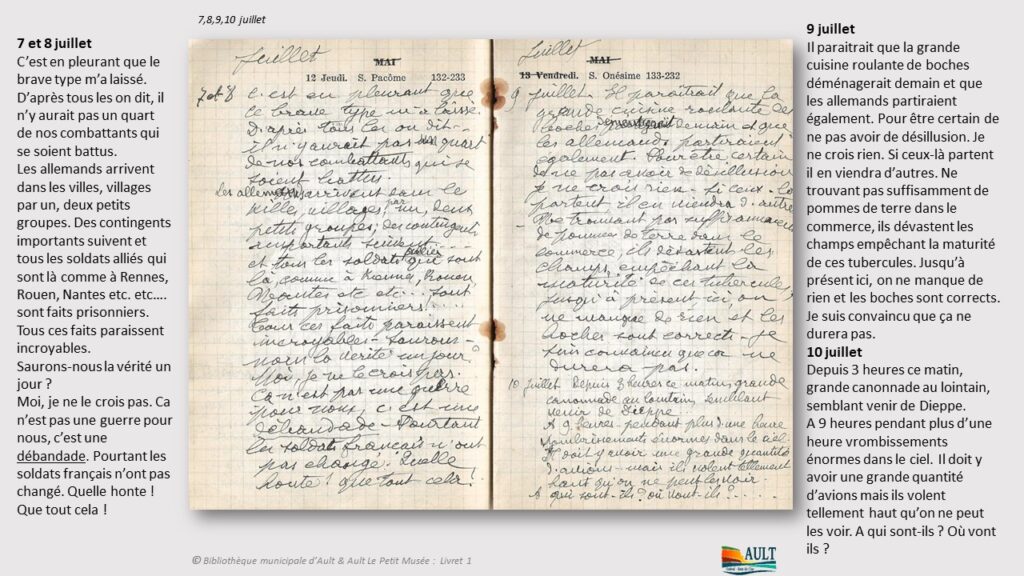 7,8,9,10 juillet
7 et 8 juillet
C'est en pleurant que le
brave type m'a laissé.
D'après tous les on dit, il
n'y aurait pas un quart
de nos combattants qui
se soient battus.
Les allemands arrivent
dans les villes, villages
par un, deux petits
groupes. Des contingents
importants suivent et
tous les soldats alliés qui
sont là comme à Rennes,
Rouen, Nantes etc. etc....
sont faits prisonniers.
Tous ces faits paraissent
incroyables.
Saurons-nous la vérité un
jour ?
Moi, je ne le crois pas. Ca
n'est pas une guerre pour
nous, c'est une
débandade. Pourtant les
soldats français n'ont pas
changé. Quelle honte !
Que tout cela !
Juillet
MAI
12 Jeudi. S. Pacôme 132-233
7 et 8 c'est en pleurant que
le brave type m'a laissé.
D'après tous les on dit-
il n'y aurait pas un quart
de nos combattants qui se
soient battus.
Les allemands arrivent dans les
ville, villages, par un, deux
petits groupes, des contingents
importants suivent....
et tous les soldats alliés qui sont
là, comme à Rennes, Rouen
Nantes etc etc... sont
faits prisonniers!
Tous ces faits paraissent
incroyables- Saurons-
nous la vérité un jour?
Moi, je ne le crois pas.
Ca n'est pas une guerre
pour nous, c'est une
débandade- Pourtant
les soldats français n'ont
pas changé. Quelle
honte! que tout cela!
Juillet
MAI
13 Vendredi. S. Onésime 133-232
9 juillet. Il paraîtrait que la
grande cuisine roulante de
boches déménagerait demain et que
les allemands partiraient
également. Pour être certain
de ne pas avoir de désillusion
je ne crois rien- Si ceux-là
partent il en viendra d'autres
Ne trouvant pas suffisamment
de pommes de terre dans le
commerce, ils dévastent les
champs, empêchant la
maturité de ces tubercules
Jusqu'à présent ici, on
ne manque de rien et les
boches sont corrects- je
suis convaincu que ça ne
durera pas.
10 juillet Depuis 3 heures ce matin, grande
canonnade au lointain, semblant
venir de Dieppe.
A 9 heures- pendant plus d'une heure
vombrissements énormes dans le ciel-
Il doit y avoir une grande quantité
d'avions- mais ils volent tellement
haut qu'on ne peut les voir.
A qui sont-ils? où vont-ils?......
9 juillet
Il paraitrait que la grande
cuisine roulante de boches
déménagerait demain et que
les allemands partiraient
également. Pour être certain de
ne pas avoir de désillusion. Je
ne crois rien. Si ceux-là partent
il en viendra d'autres. Ne
trouvant pas suffisamment de
pommes de terre dans le
commerce, ils dévastent les
champs empêchant la maturité
de ces tubercules. Jusqu'à
présent ici, on ne manque de
rien et les boches sont corrects.
Je suis convaincu que ça ne
durera pas.
10 juillet
Depuis 3 heures ce matin,
grande canonnade au lointain,
semblant venir de Dieppe.
A 9 heures pendant plus d'une
heure vrombissements
énormes dans le ciel. Il doit y
avoir une grande quantité
d'avions mais ils volent
tellement haut qu'on ne peut
les voir. A qui sont-ils ? Où vont
ils ?
© Bibliothèque municipale d'Ault & Ault Le Petit Musée : Livret 1
AULT